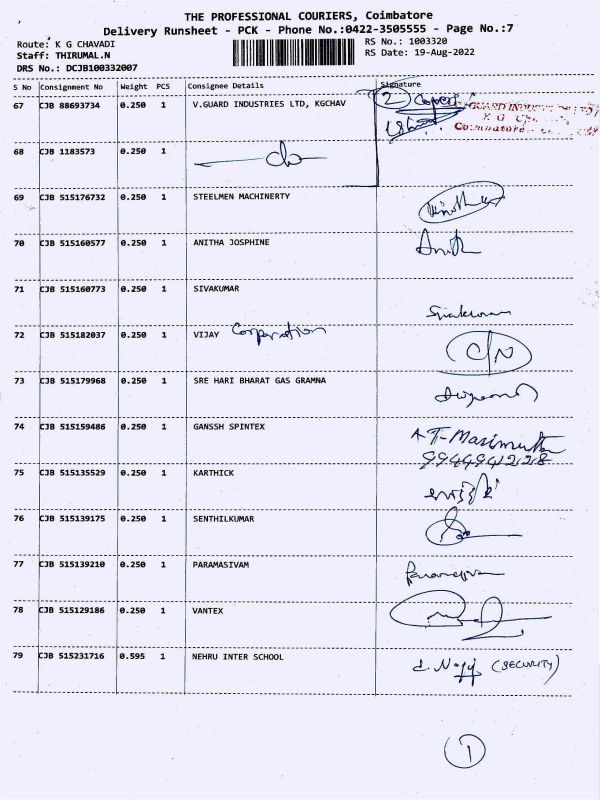 THE PROFESSIONAL COURIERS, Coimbatore
Delivery Runsheet - PCK - Phone No.:0422-3505555 - Page No.:7
Route: K G CHAVADI
RS No.: 1003320
Staff: THIRUMAL.N
RS Date: 19-Aug-2022
DRS No.: DCJB100332007
S No Consignment No Weight PCS Consignee Details Signature
67 CJB 88693734 0.250 1 V.GUARD INDUSTRIES LTD, KGCHAV
68 CJB 1183573 0.250 1
69 CJB 515176732 0.250 1 STEELMEN MACHINERTY
70 CJB 515160577 0.250 1 ANITHA JOSPHINE
71 CJB 515160773 0.250 1 SIVAKUMAR
72 CJB 515182037 0.250 1 VIJAY Corporation C/N
73 CJB 515179968 0.250 1 SRE HARI BHARAT GAS GRAMNA
74 CJB 515159486 0.250 1 GANSSH SPINTEX
75 CJB 515135529 0.250 1 KARTHICK
76 CJB 515139175 0.250 1 SENTHILKUMAR
77 CJB 515139210 0.250 1 PARAMASIVAM
78 CJB 515129186 0.250 1 VANTEX
79 CJB 515231716 0.595 1 NEHRU INTER SCHOOL (SECURITY)
1